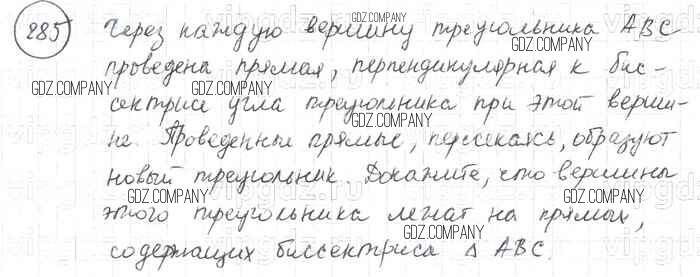 885 Через каждую вершину треугольника ABC
проведена прямая, перпендикулярная к бис-
сектрисе угла треугольника при этой верши-
не. Проведенные прямые, пересекаясь, образуют
новый треугольник. Докажите, что вершины
этого треугольника лежат на прямых,
содержащих биссектрисы Δ ABC.
GDZ.COMPANY
GDZ.COMPANY
GDZ.COMPANY
GDZ.COMPANY
GDZ.COMPANY
GDZ.COMPANY
GDZ.COMPANY
GDZ.COMPANY
GDZ.COMPANY
GDZ.COMPANY
GDZ.COMPANY